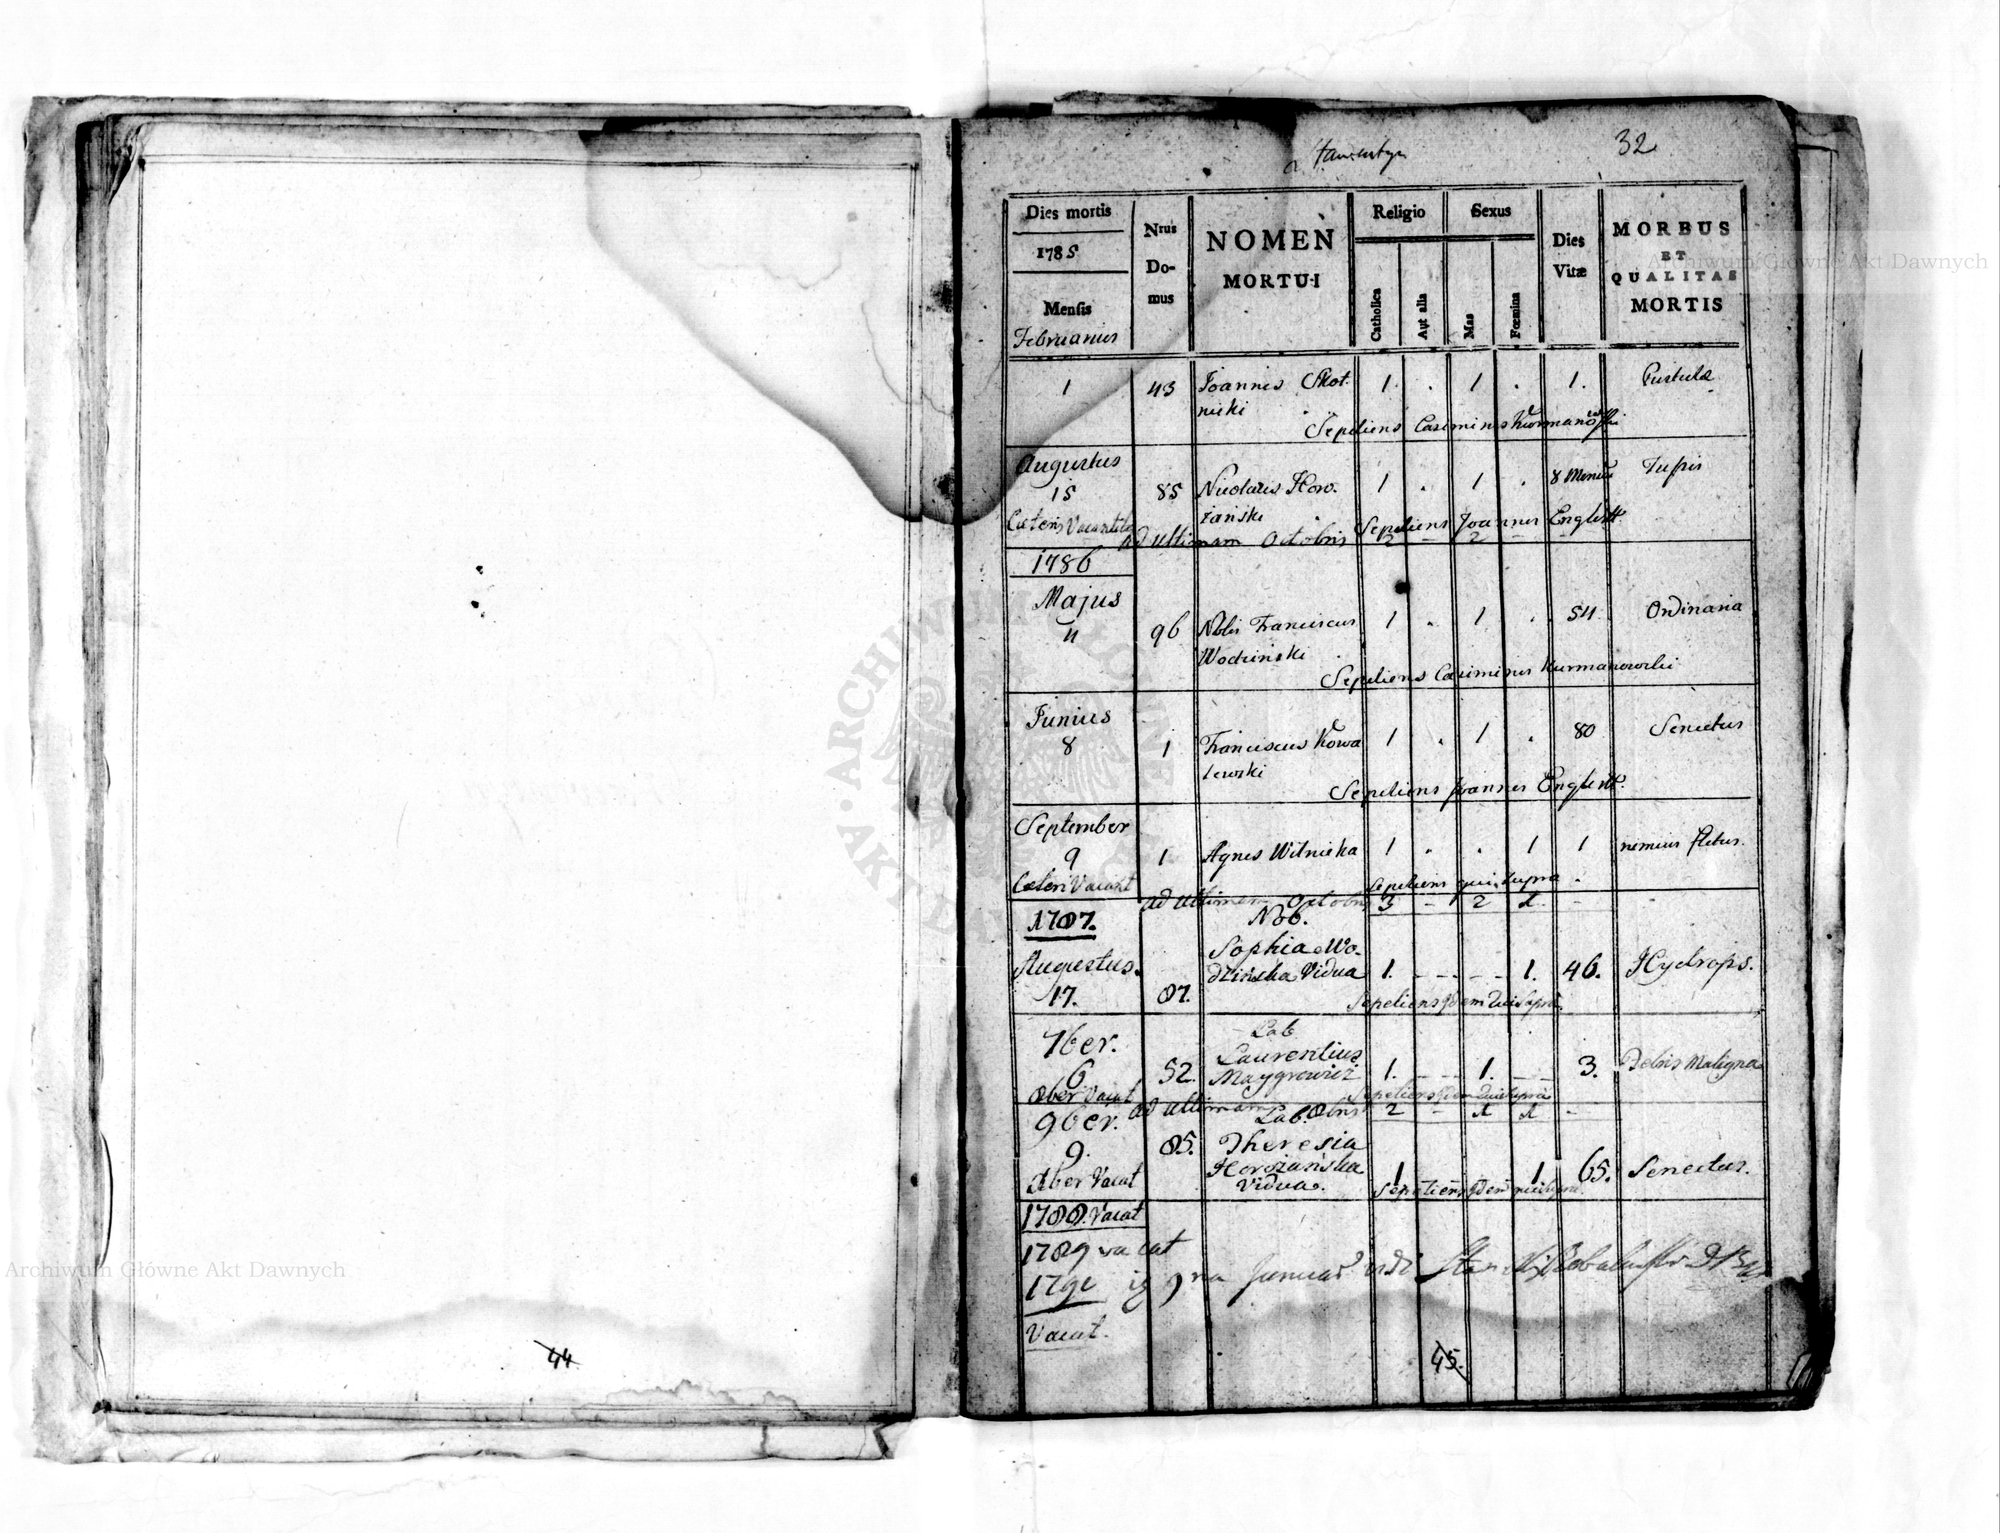 32
Dies mortis
1785
Mensis
Februarius
Nrus
Do-
mus
NOMEN
MORTUI
Religio
Catholica
Aut alia
Sexus
Mas
Fœmina
Dies
Vitæ
MORBUS
ET
QUALITAS
MORTIS
1 43 Joannes Skot. 1 . 1 . 1. Pustulæ
nicki
Sepeliens Casimirus
Augustus
15 85 Nicolaus Horo. 1 . 1 . 8 Tussis
żański
Sepeliens Joannes Englert
ad ultimam Octobris 2 - 2 - -
1786
Majus
11 96 Nobis Franciscus 1 . 1 . 54 Ordinaria
Wodziński
Sepeliens Casimirus Kurmanowski
Junius
8 1 Franciscus Kowa 1 . 1 . 80 Senectus
lewski
Sepeliens Joannes Englert.
September
9 1 Agnes Wilnicka 1 . . 1 1 nimius fletus.
Cæteri Vacant
Sepeliens qui supra.
ad ultimam Octobris 3 - 2 1 -
1787.
Nob.
Augustus. Sophia Wo-
17. 87. dzińska Vidua 1. - - - 1. 46. Hydrops.
Sepeliens qui supra
7ber. Lab.
6 52. Laurentius 1. - 1. - 3. Febris Maligna
8ber Vacat
Sepeliens qui supra
ad ultimam 8bris 2 - 1 1 -
9ber. Lab.
9. 85. Theresia
Horożańska 1 1 65. Senectus.
Xber Vacat Vidua.
Sepeliens qui supra
1788. Vacat
1789 vacat
Vacat.
44
45.
Archiwum Główne Akt Dawnych
Archiwum Główne Akt Dawnych
ARCHIWUM GŁÓWNE AKT DAWNYCH